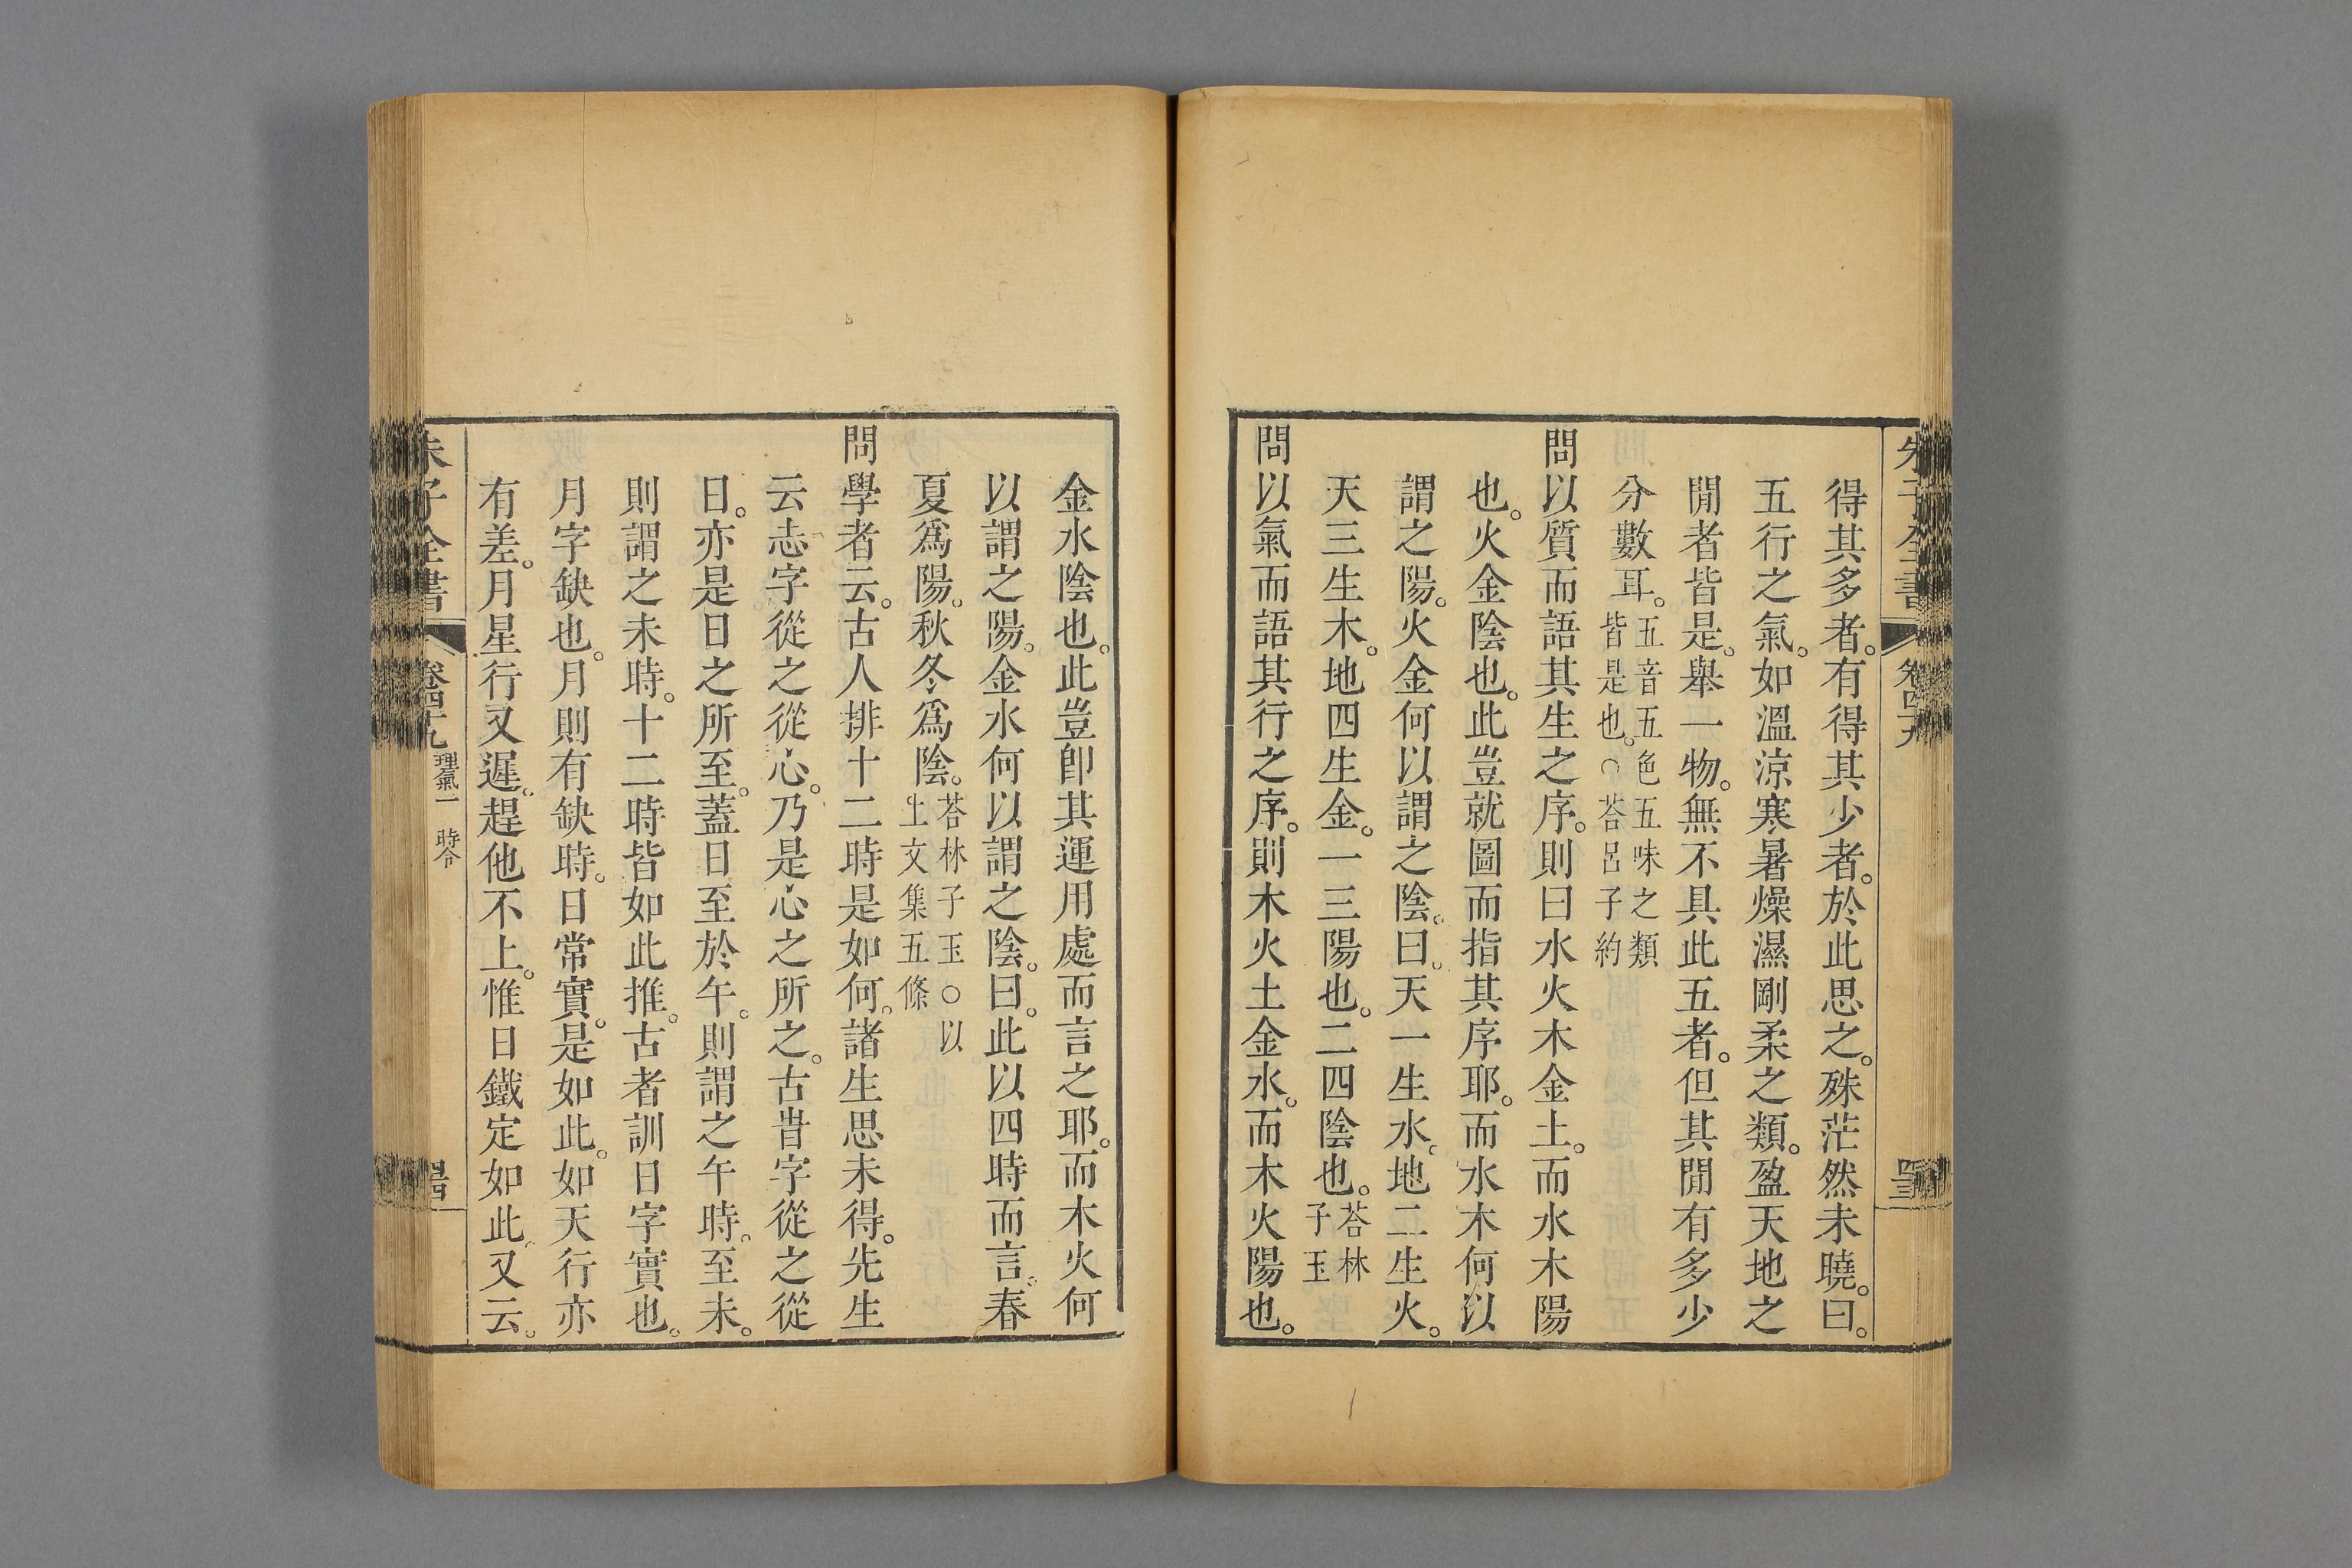 朱子全書 卷四十九
得其多者。有得其少者。於此思之。殊茫然未曉。曰。
五行之氣。如溫涼寒暑燥濕剛柔之類。盈天地之
閒者皆是。舉一物。無不具此五者。但其閒有多少
分數耳。五音五色五味之類皆是也。○荅呂子約
問以質而語其生之序。則曰水火木金土。而水木陽
也。火金陰也。此豈就圖而指其序耶。而水木何以
謂之陽。火金何以謂之陰。曰。天一生水。地二生火。
天三生木。地四生金。一三陽也。二四陰也。荅林子玉
問以氣而語其行之序。則木火土金水。而木火陽也。
金水陰也。此豈卽其運用處而言之耶。而木火何
以謂之陽。金水何以謂之陰。曰。此以四時而言。春
夏爲陽。秋冬爲陰。荅林子玉○以上文集五條
問學者云。古人排十二時是如何。諸生思未得。先生
云志字從之從心。乃是心之所之。古旹字從之從
日。亦是日之所至。蓋日至於午。則謂之午時。至未。
則謂之未時。十二時皆如此推。古者訓日字實也。
月字缺也。月則有缺時。日常實。是如此。如天行亦
有差。月星行又遲。趕他不上。惟日鐵定如此。又云。
朱子全書 卷四十九 理氣一 時令